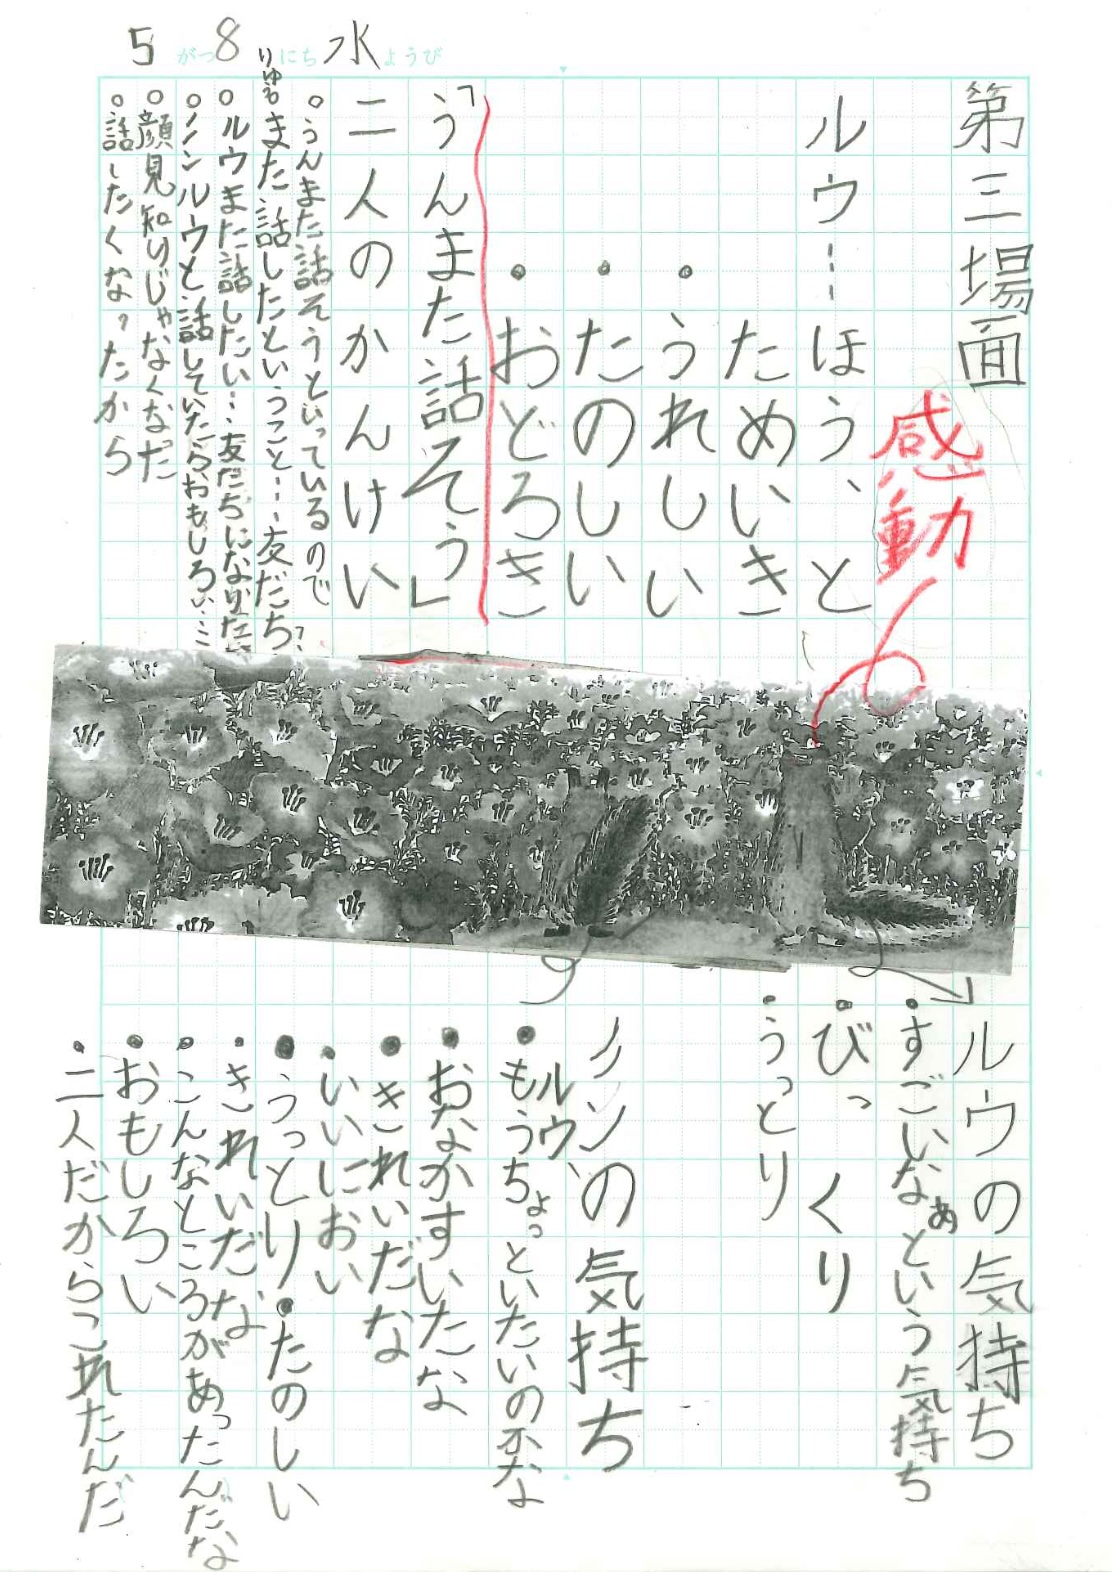 5がつ8にち水ようび
第三場面
感動
ルウ……ほう、と
ためいき
・うれしい
・たのしい
・おどろき
「うんまた話そう」
二人のかんけい
○うんまた話そうといっているので
また話したということ……友だち
○ルウまた話したい…友だちになりたい
○ノノンルウと話していたらおもしろい…
○顔見知りじゃなくなった
○話したくなったから
ルウの気持ち
・すごいなあという気持ち
・びっくり
・うっとり
ノノンの気持ち
ルウ、
・もうちょっといたいの
・おなかすいたな
・きれいだな
・いいにおい
・うっとり・たのしい
・きれいだな
・こんなところがあったんだな
・おもしろい
・二人だからこれたんだ